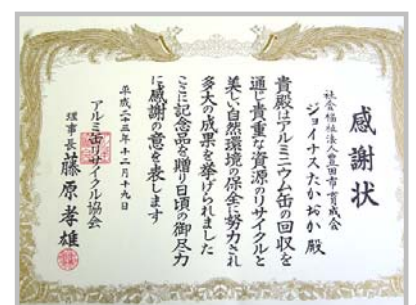 感謝状
社会福祉法人豊田市育成会
ジョイナスたかおか殿
貴殿はアルミニウム缶の回収を
通じ貴重な資源のリサイクルと
美しい自然環境の保全に努力され
多大の成果を挙げられました
ここに記念品を贈り日頃の御尽力
に感謝の意を表します
平成二十五年十二月十九日
アルミ缶リサイクル協会
理事長藤原孝雄